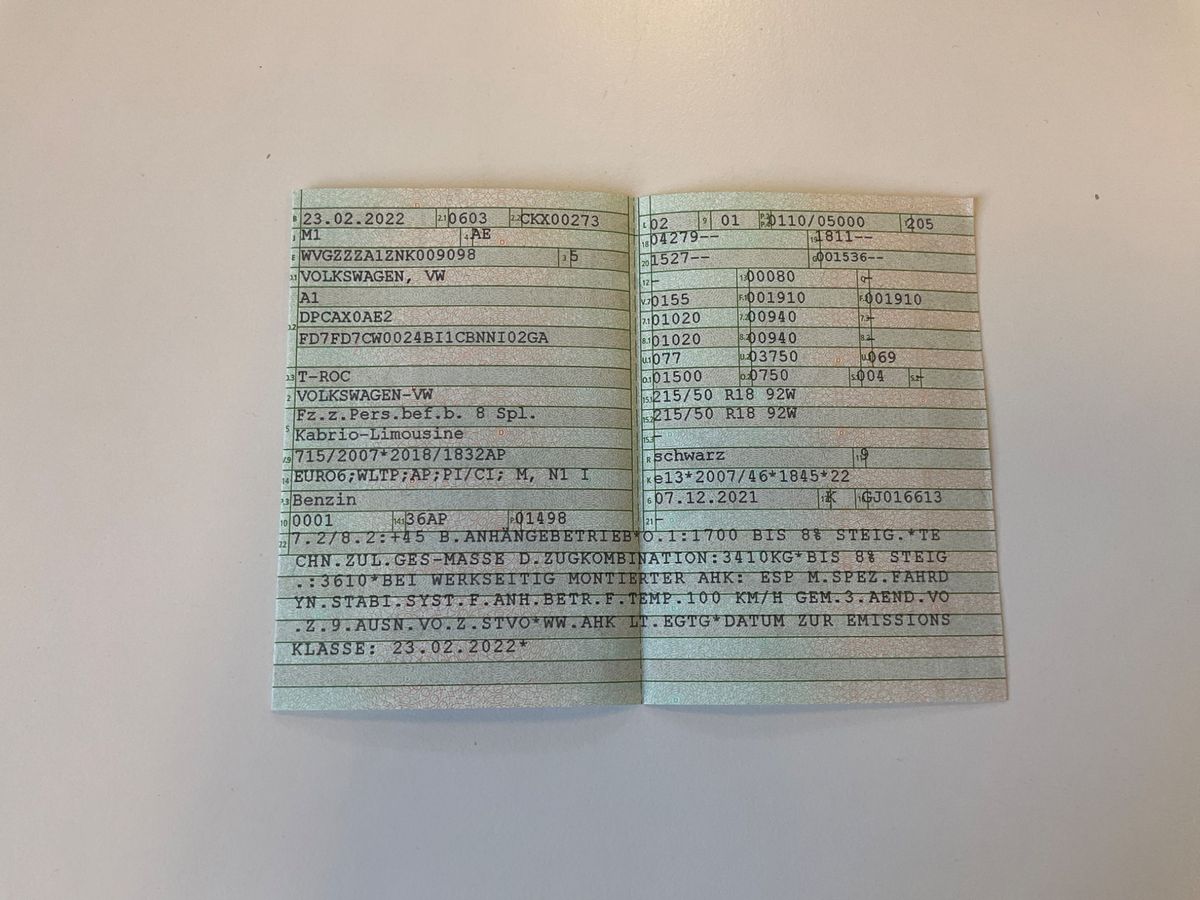 B 23.02.2022 2.1 0603 2.2 CKX00273
J M1 4 AE
E WVGZZZA1ZNK009098 3 5
D.1 VOLKSWAGEN, VW
A1
DPCAX0AE2
D.2 FD7FD7CW0024BI1CBNNI02GA
D.3 T-ROC
2 VOLKSWAGEN-VW
Fz.z.Pers.bef.b. 8 Spl.
5 Kabrio-Limousine
V.9 715/2007*2018/1832AP
14 EURO6;WLTP;AP;PI/CI; M, N1 I
P.3 Benzin
10 0001 14.1 36AP P.1 01498
L 02 9 01 P.2/P.4 0110/05000 T 205
18 04279-- 19 1811--
20 1527-- G 001536--
12 - 13 00080 Q -
V.7 0155 F.1 001910 F.2 001910
7.1 01020 7.2 00940 7.3 -
8.1 01020 8.2 00940 8.3 -
U.1 077 U.2 03750 U.3 069
O.1 01500 O.2 0750 S.1 004 S.2 -
15.1 215/50 R18 92W
15.2 215/50 R18 92W
15.3 -
R schwarz 11 9
K e13*2007/46*1845*22
6 07.12.2021 17 K 16 GJ016613
21 -
22 7.2/8.2:+45 B.ANHÄNGEBETRIEB*O.1:1700 BIS 8% STEIG.*TE
CHN.ZUL.GES-MASSE D.ZUGKOMBINATION:3410KG*BIS 8% STEIG
.:3610*BEI WERKSEITIG MONTIERTER AHK: ESP M.SPEZ.FAHRD
YN.STABI.SYST.F.ANH.BETR.F.TEMP.100 KM/H GEM.3.AEND.VO
.Z.9.AUSN.VO.Z.STVO*WW.AHK LT.EGTG*DATUM ZUR EMISSIONS
KLASSE: 23.02.2022*